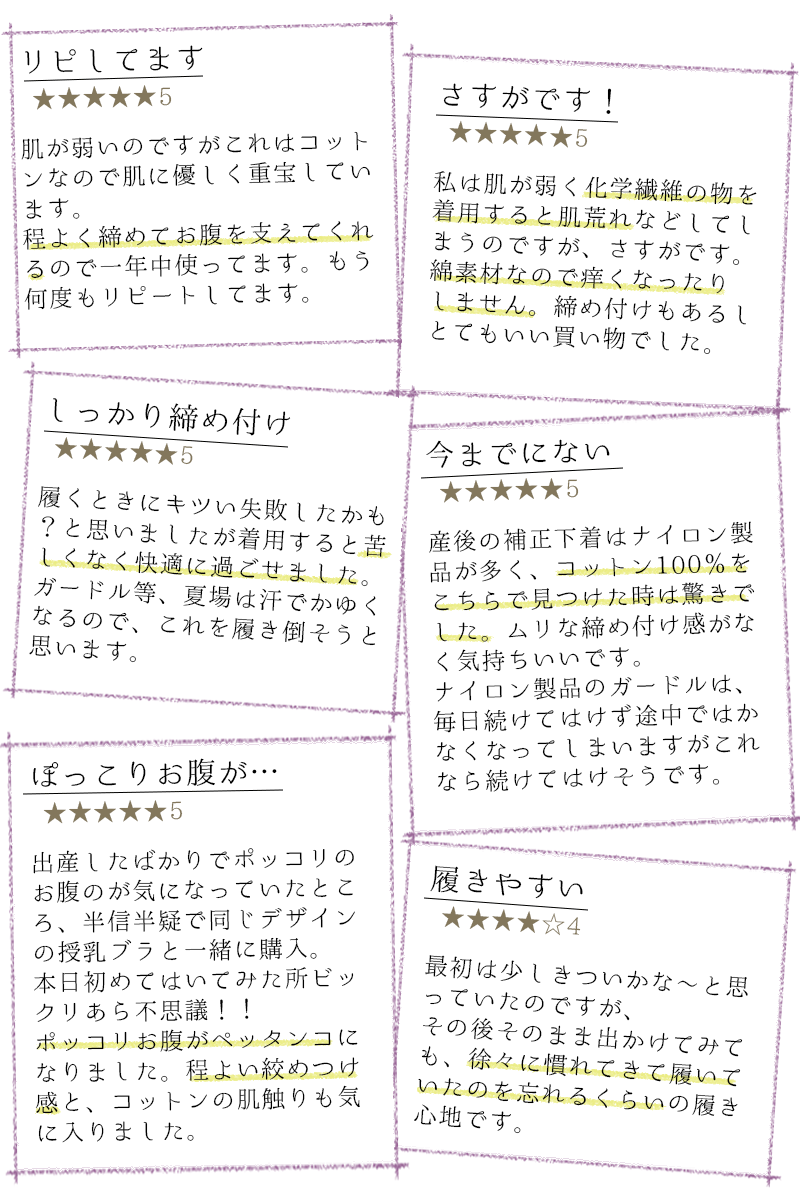 リピしてます
★★★★★5
肌が弱いのですがこれはコット
ンなので肌に優しく重宝してい
ます。
程よく締めてお腹を支えてくれ
るので一年中使ってます。もう
何度もリピートしてます。
さすがです！
★★★★★5
私は肌が弱く化学繊維の物を
着用すると肌荒れなどしてし
まうのですが、さすがです。
綿素材なので痒くなったり
しません。締め付けもあるし
とてもいい買い物でした。
しっかり締め付け
★★★★★5
履くときにキツい失敗したかも
？と思いましたが着用すると苦
しくなく快適に過ごせました。
ガードル等、夏場は汗でかゆく
なるので、これを履き倒そうと
思います。
今までにない
★★★★★5
産後の補正下着はナイロン製
品が多く、コットン100％を
こちらで見つけた時は驚きで
した。ムリな締め付け感がな
く気持ちいいです。
ナイロン製品のガードルは、
毎日続けてはけず途中ではか
なくなってしまいますがこれ
なら続けてはけそうです。
ぽっこりお腹が…
★★★★★5
出産したばかりでポッコリの
お腹のが気になっていたとこ
ろ、半信半疑で同じデザイン
の授乳ブラと一緒に購入。
本日初めてはいてみた所ビッ
クリあら不思議！！
ポッコリお腹がペッタンコに
なりました。程よい絞めつけ
感と、コットンの肌触りも気
に入りました。
履きやすい
★★★★☆4
最初は少しきついかな～と思
っていたのですが、
その後そのまま出かけてみて
も、徐々に慣れてきて履いて
いたのを忘れるくらいの履き
心地です。